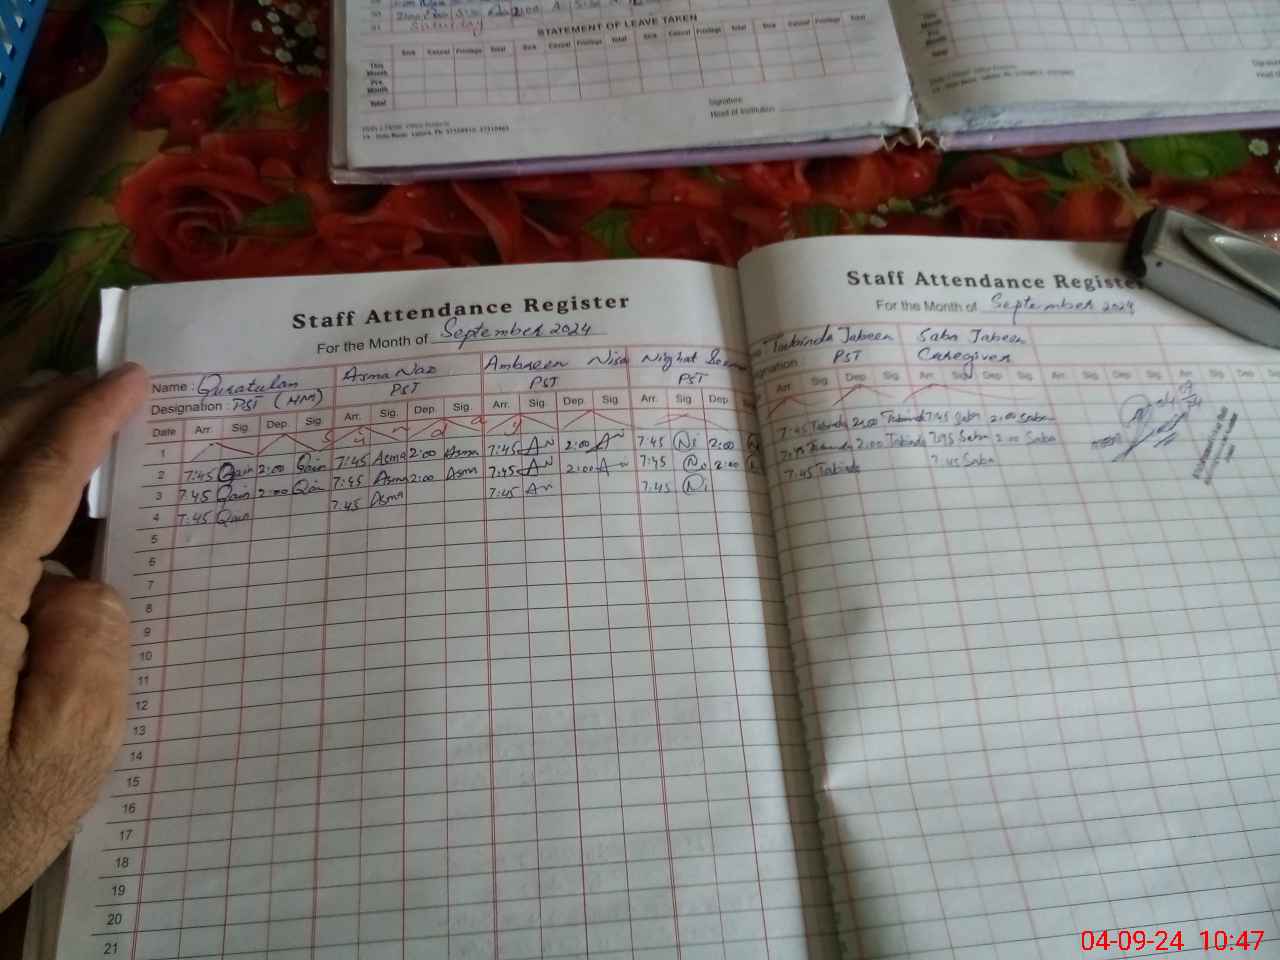 Saturday
STATEMENT OF LEAVE TAKEN
Sick Casual Privilege Total Sick Casual Privilege Total Sick Casual Privilege Total Sick Casual Privilege Total
This Month
Pre. Month
Total
Signature
Head of Institution
Staff Attendance Register
For the Month of September 2024
Name : Quratulan Asma Naz Ambreen Nisa Nighat
Designation : PST (HM) PST PST PST
Date Arr. Sig. Dep. Sig. Arr. Sig. Dep. Sig. Arr. Sig. Dep. Sig. Arr. Sig. Dep.
1 S u n d a y
2 7:45 Qain 2:00 Qain 7:45 Asma 2:00 Asma 7:45 AN 2:00 AN 7:45 Ni 2:00
3 7:45 Qain 2:00 Qain 7:45 Asma 2:00 Asma 7:45 AN 2:00 7:45 Ni 2:00
4 7:45 Qain 7:45 Asma 7:45 An 7:45 Ni
5
6
7
8
9
10
11
12
13
14
15
16
17
18
19
20
21
Staff Attendance Register
For the Month of September 2024
Tabinda Jabeen Saba Jabeen
PST Caregiver
Arr. Sig. Dep. Sig. Arr. Sig. Dep. Sig. Arr. Sig. Dep. Sig. Arr. Sig. Dep.
7:45 Tabinda 2:00 Tabinda 7:45 Saba 2:00 Saba
2:00 Tabinda 7:45 Saba 2:00 Saba
7:45 Tabinda 7:45 Saba
04-09-24 10:47